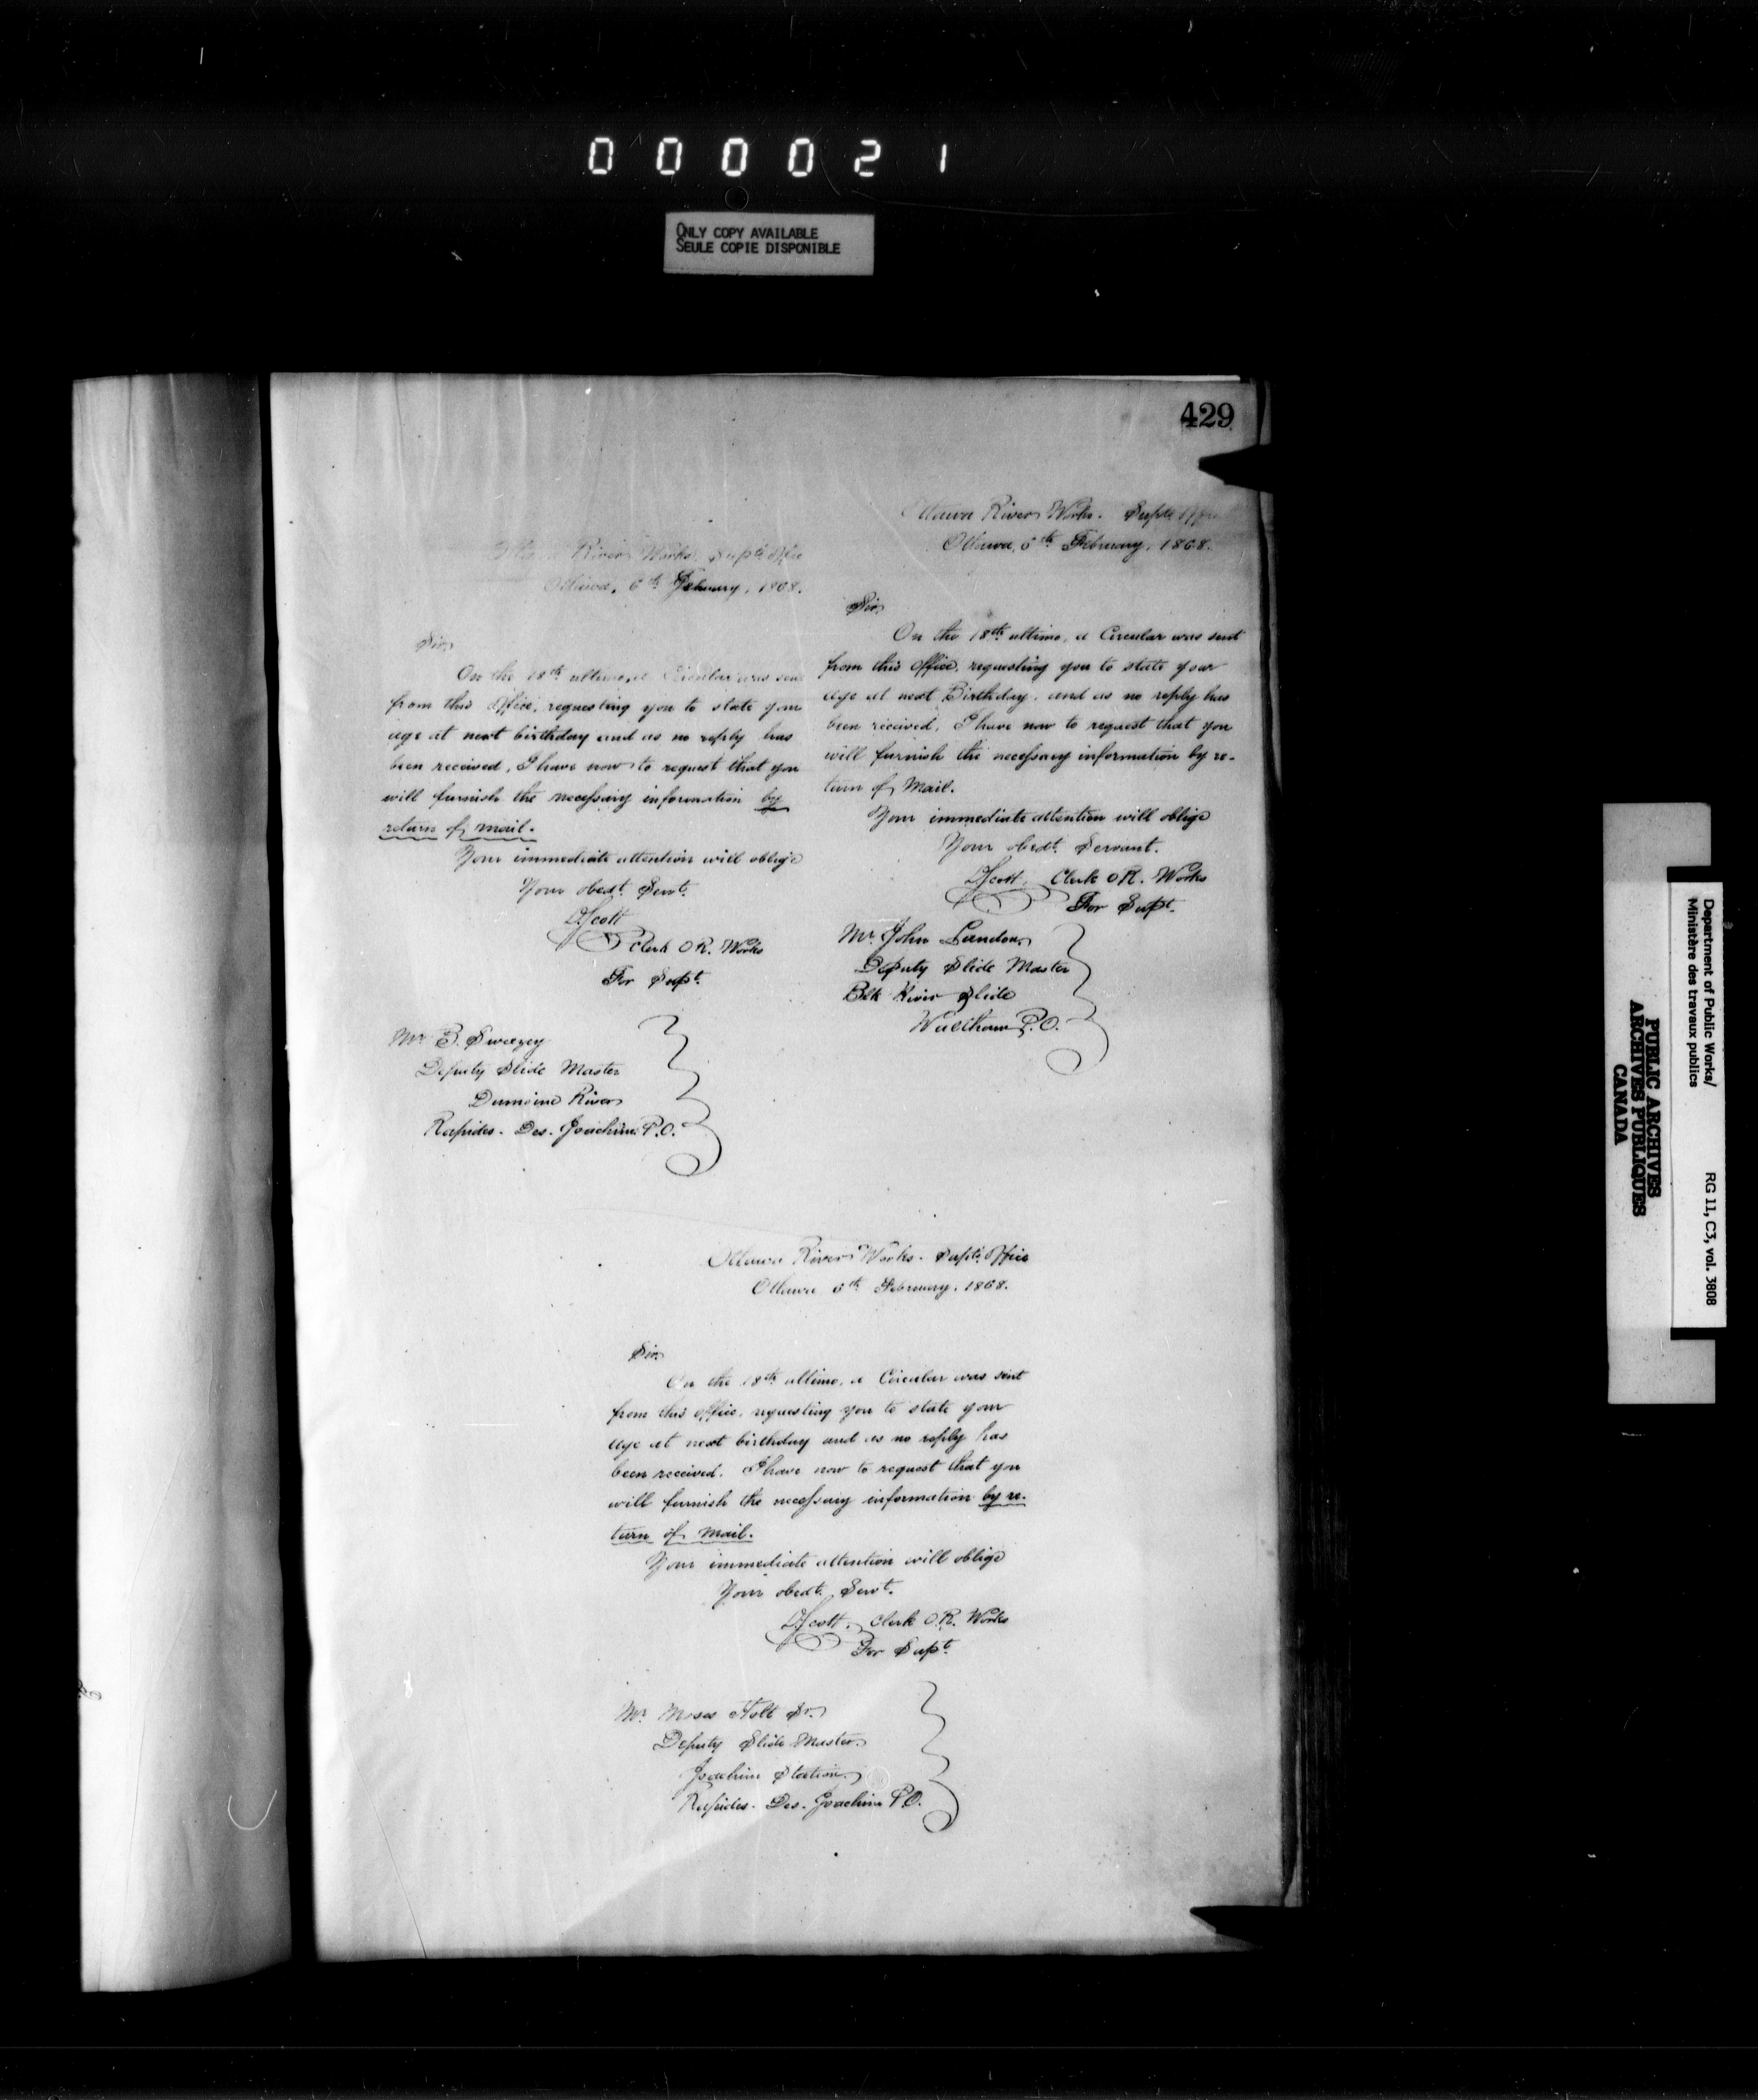 000021
ONLY COPY AVAILABLE
SEULE COPIE DISPONIBLE
429
River Works, Supts Office
Ottawa, 6th February, 1868.
Sir,
On the 18th ultimo, a Circular was sent
from this Office, requesting you to state your
age at next birthday and as no reply has
been received, I have now to request that you
will furnish the necessary information by
return of mail.
Your immediate attention will oblige
Your obedt. Servt.
D Scott
Clerk O R. Works
For Supt.
Mr B. Sweezey
Deputy Slide Master
Dumoine River
Rapides. Des. Joachim P.O.
Ottawa River Works. Supts Office
Ottawa, 6th February, 1868.
Sir,
On the 18th ultimo, a Circular was sent
from this Office, requesting you to state your
age at next Birthday. and as no reply has
been received, I have now to request that you
will furnish the necessary information by re-
turn of Mail.
Your immediate attention will oblige
Your obedt. Servant.
D Scott, Clerk O R. Works
For Supt.
Mr. John Landon
Deputy Slide Master
Blk River Slide
Waltham P.O.
Ottawa River Works. Supts. Office
Ottawa 6th February, 1868.
Sir,
On the 18th ultimo, a Circular was sent
from this office, requesting you to state your
age at next birthday and as no reply has
been received. I have now to request that you
will furnish the necessary information by re-
turn of Mail.
Your immediate attention will oblige
Your obedt. Servt.
D Scott, Clerk O.R. Works
For Supt.
Mr. Moses Holt Sr.
Deputy Slide Master.
Joachim Station.
Rapides. Des. Joachim P.O.
Department of Public Works/
Ministère des travaux publics
RG 11, C3, vol. 3808
PUBLIC ARCHIVES
ARCHIVES PUBLIQUES
CANADA